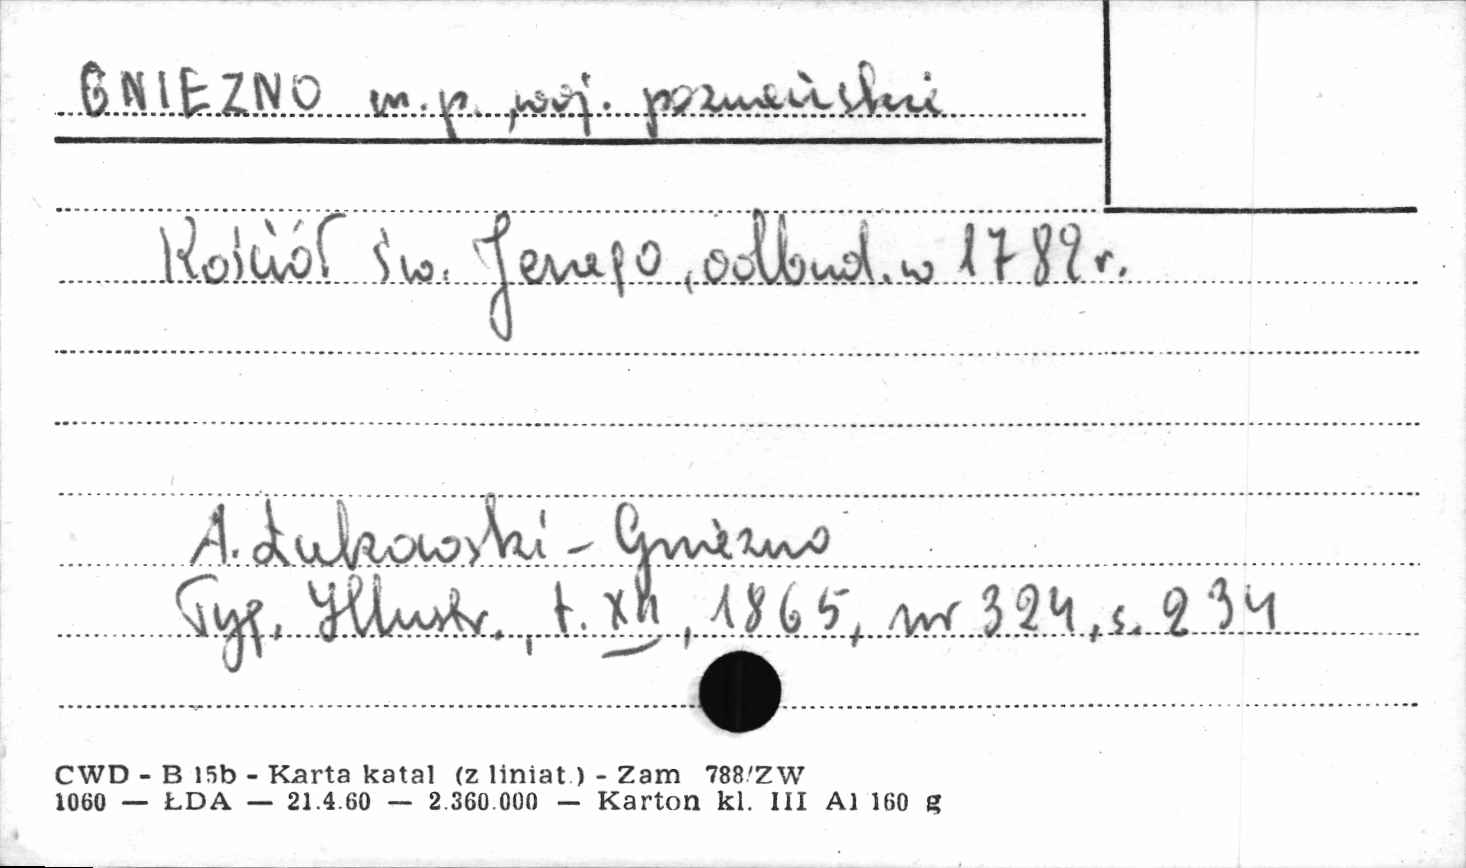 GNIEZNO m.p., woj. poznański
Kościół św. Jerzego, odbud. w 1782 r.
A. Łukowski - Gniezno
Tyg. Illustr., t. XII, 1865, nr 324, s. 234
CWD - B 15b - Karta katal (z liniat.) - Zam 788/ZW
1060 — ŁDA — 21.4.60 — 2.360.000 — Karton kl. III A1 160 g